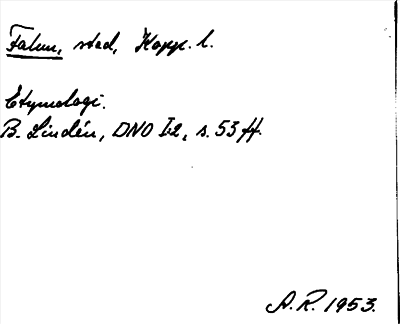 Falun, stad, Kopp. l.
Etymologi.
B. Lindén, DNO I:2, s. 53 ff.
A.R. 1953.